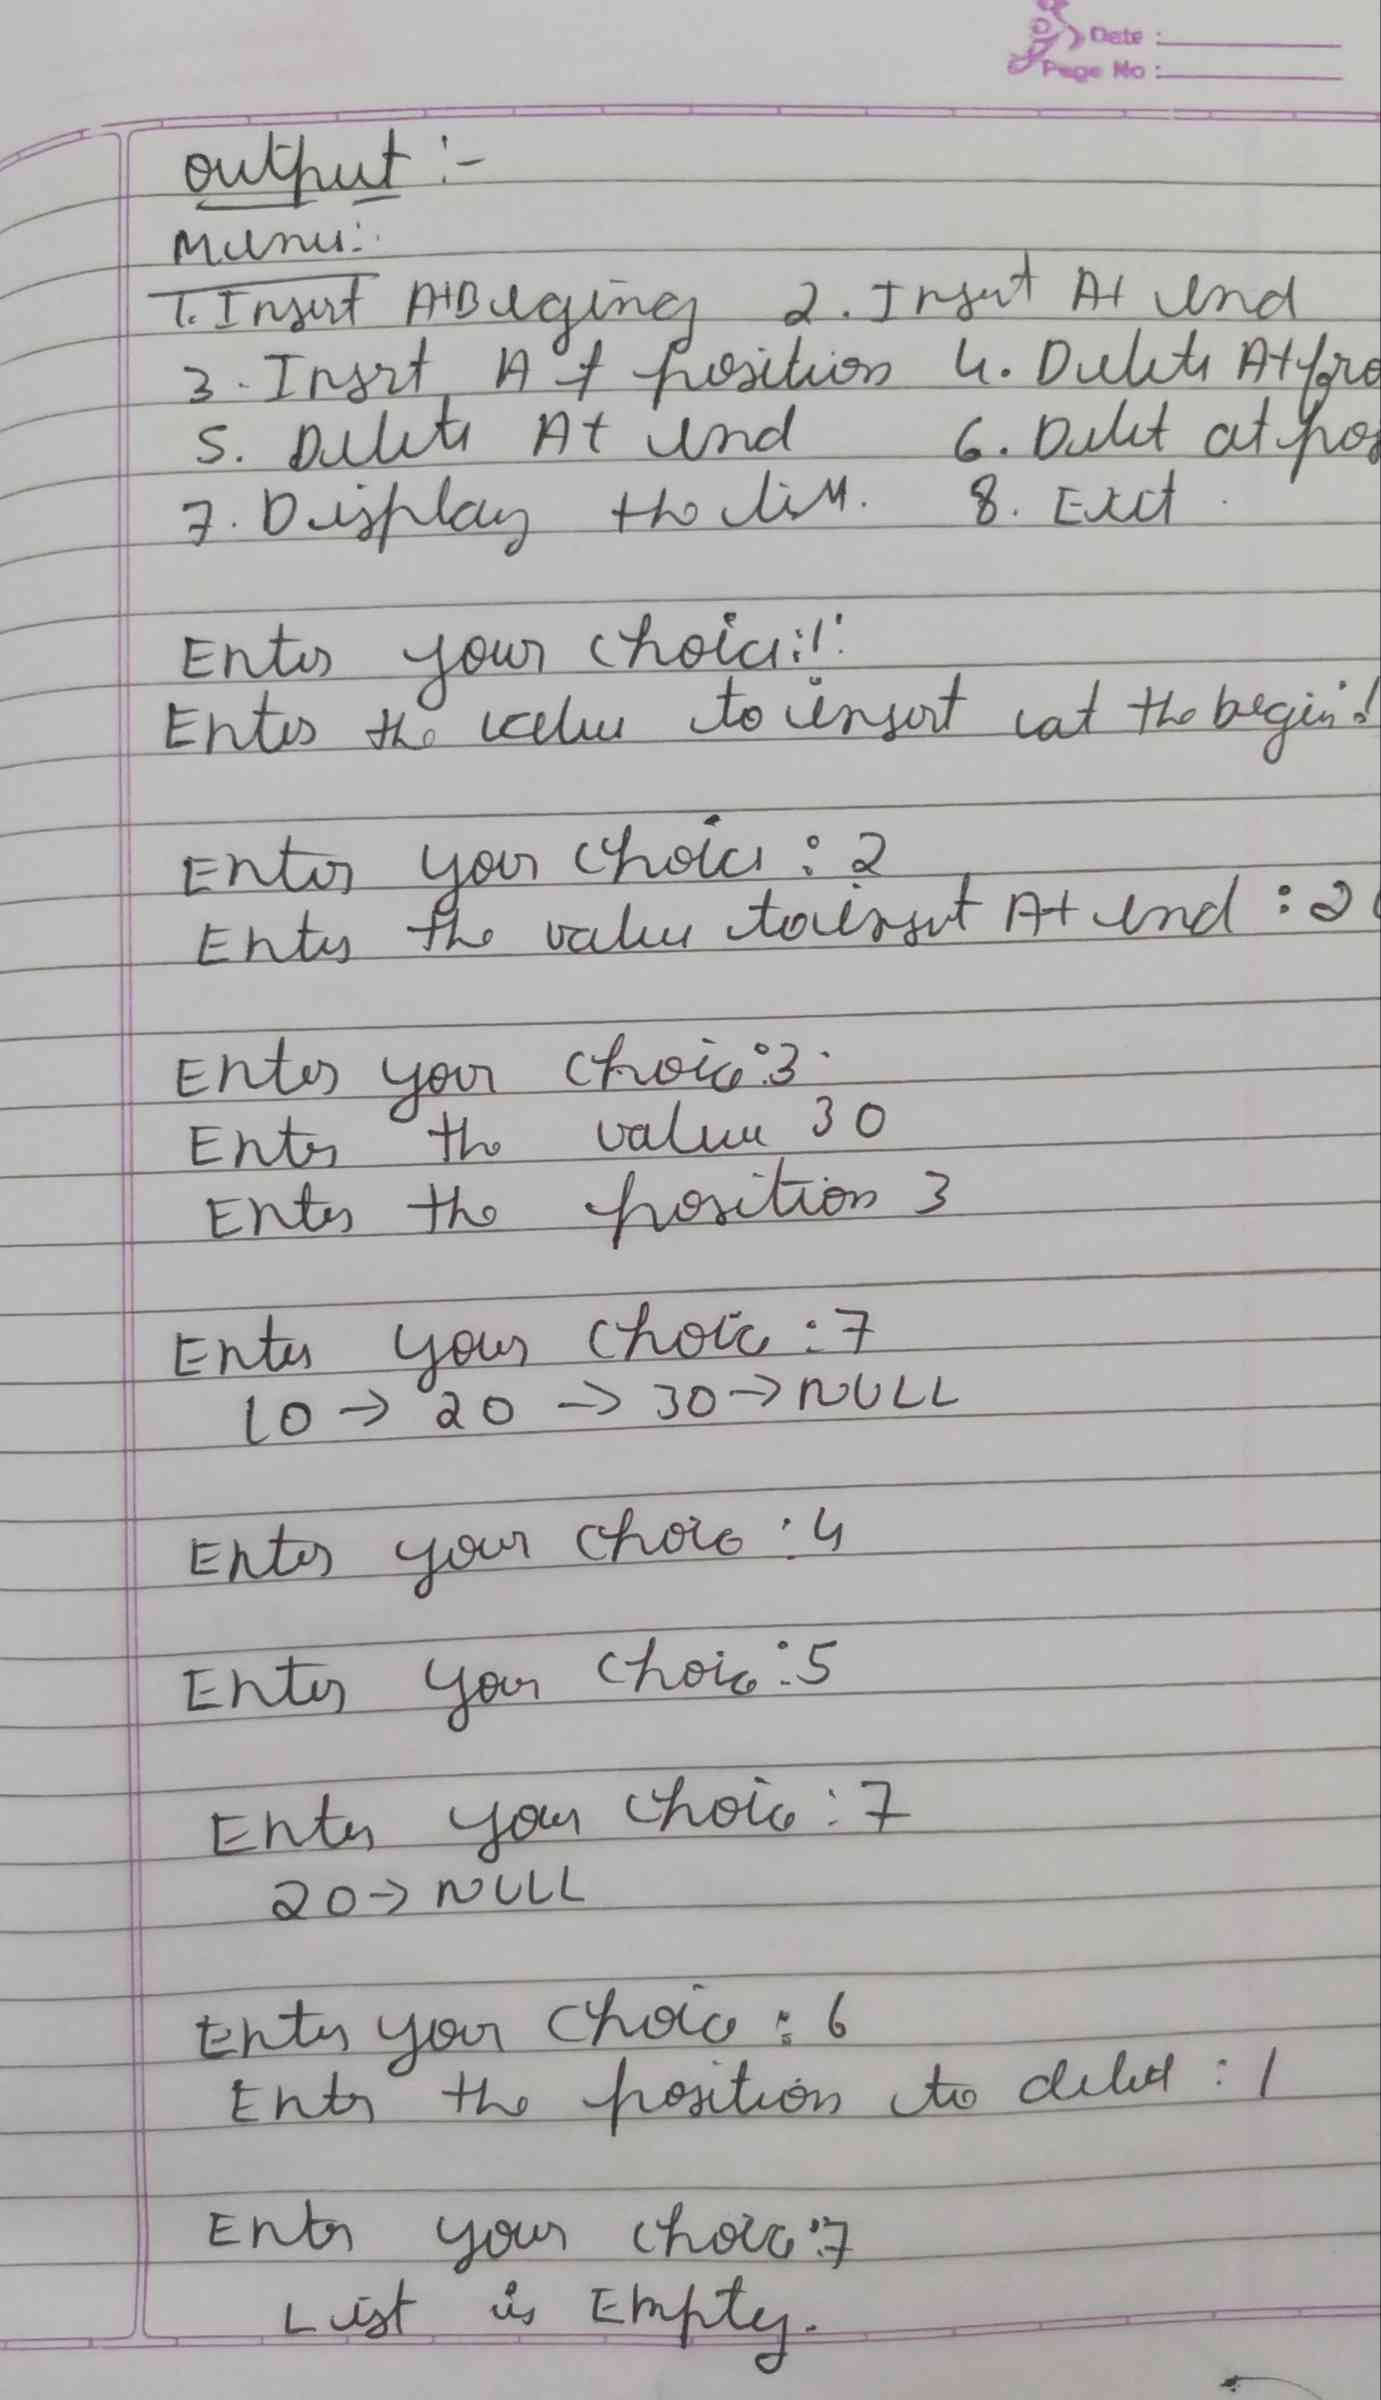 Date :
Page No :
output :-
Menu:
1. Insert At Beging 2. Insert At end
3. Insrt At position 4. Delete At fro
5. Delete At end 6. Delet at pos
7. Display the list. 8. Exit
Enter your choice: 1
Enter the value to insert at the begin:
Enter your choice : 2
Enter the value to insert At end : 20
Enter your choice: 3
Enter the value 30
Enter the position 3
Enter your choice : 7
10 → 20 → 30 → NULL
Enter your choice : 4
Enter your choice : 5
Enter your choice : 7
20 → NULL
Enter your choice : 6
Enter the position to delet : 1
Enter your choice : 7
List is Empty.